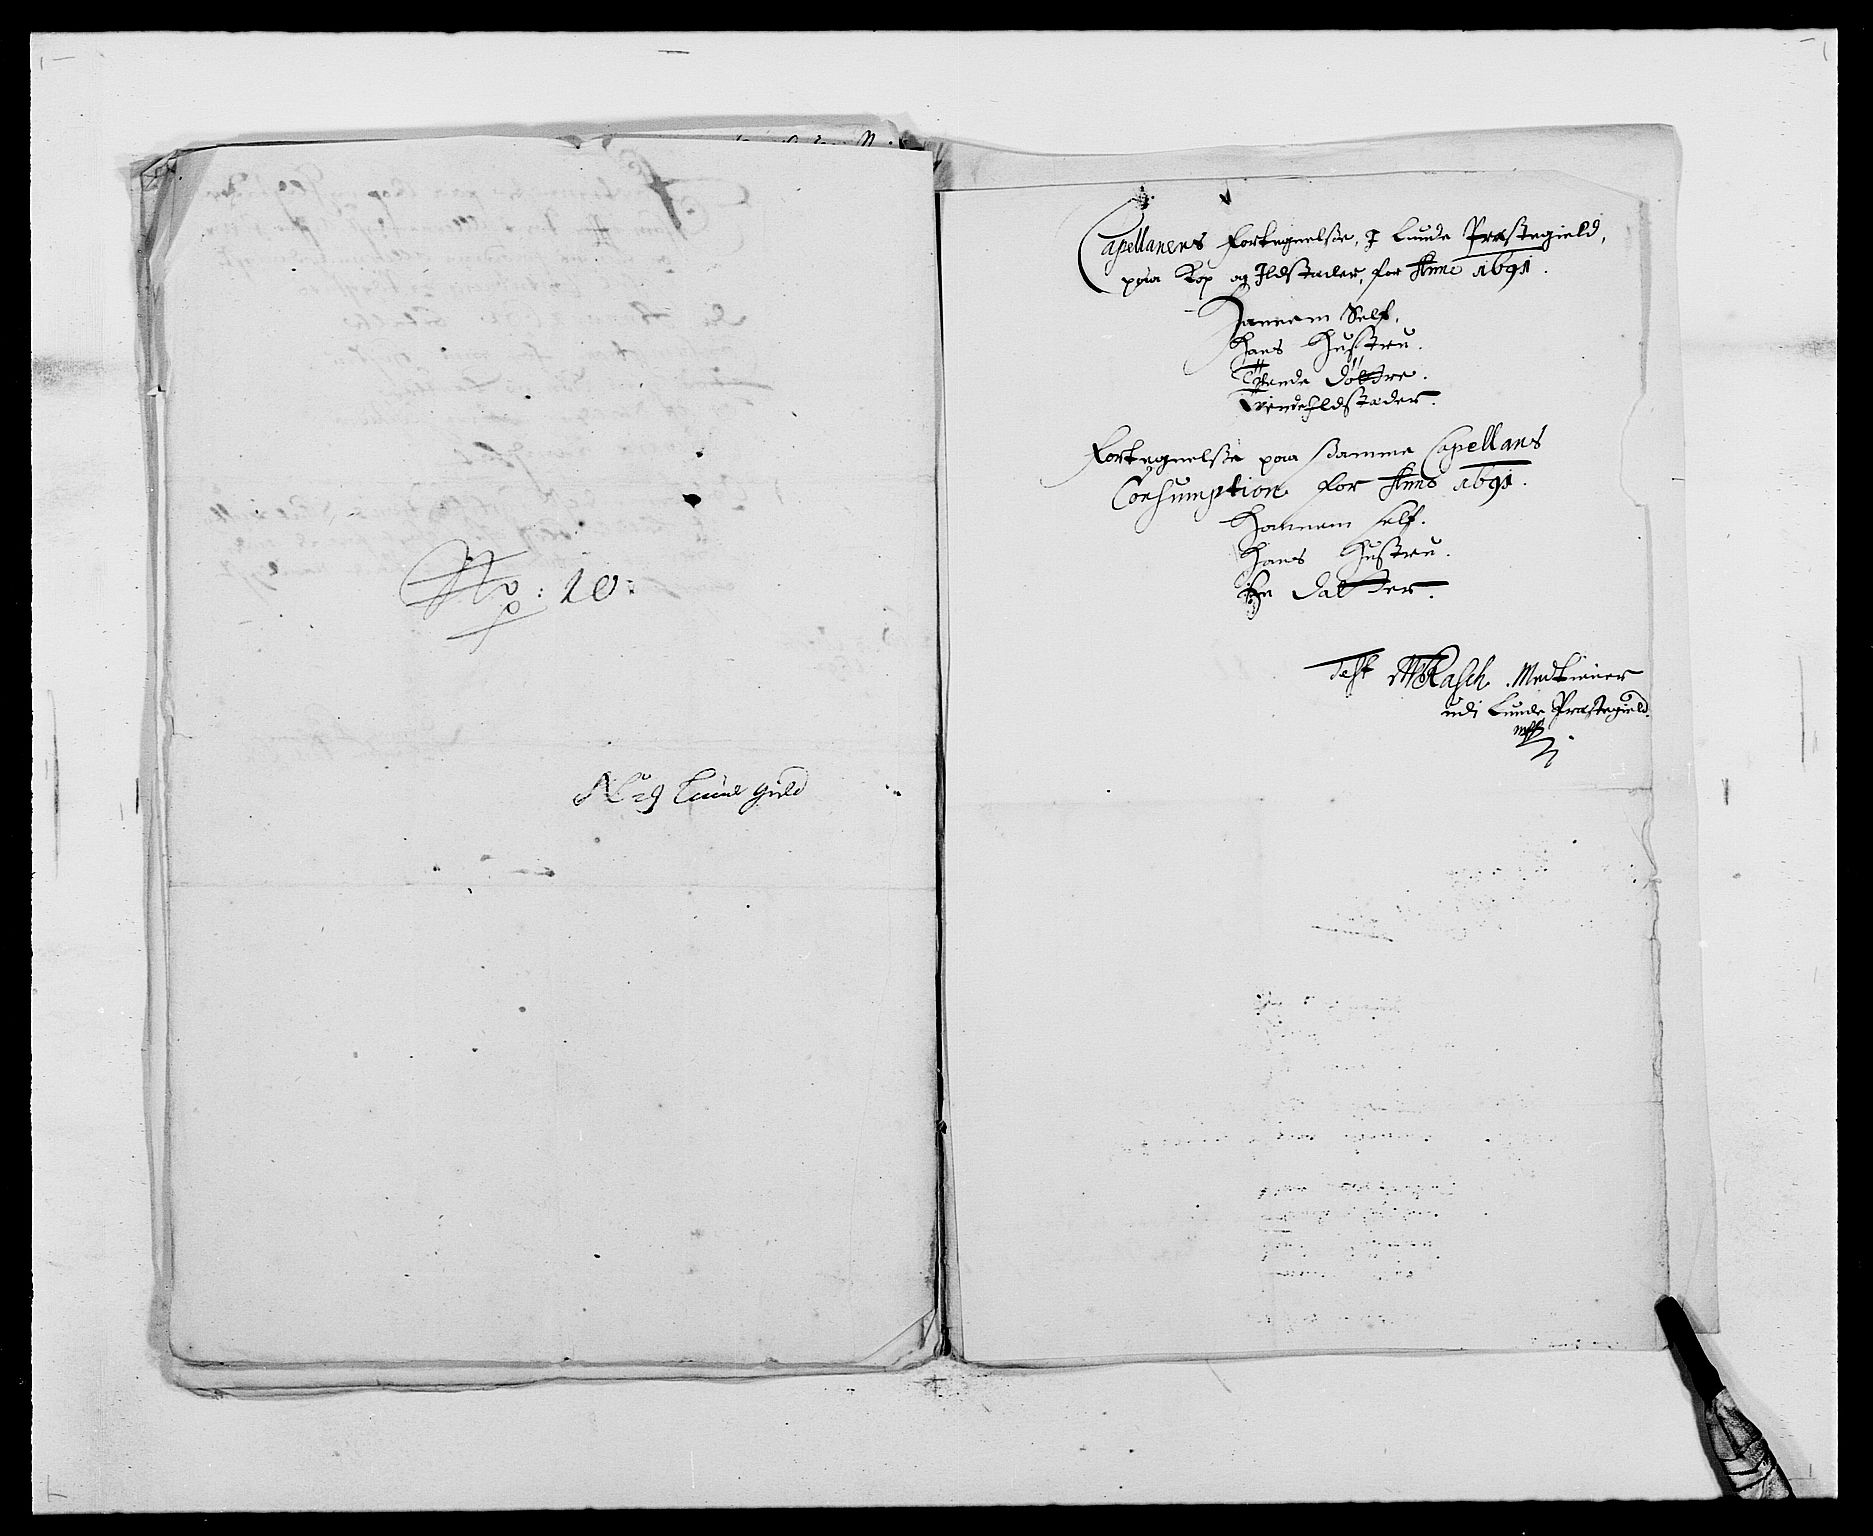 No: 10:
Lunde gield
Capellanens Fortegnelse, I Lunde Præstegield,
paa Kop og Ildstæder, for Anno 1691.
Hannem Self.
Hans Hustru.
Tvende Døttre.
Tvende Ildstæder.
Fortegnelse paa samme Capellans
Consumption for Anno 1691.
Hannem self.
Hans Hustru.
En Datter.
Test Rasch. Medtiener
udi Lunde Præstegield.